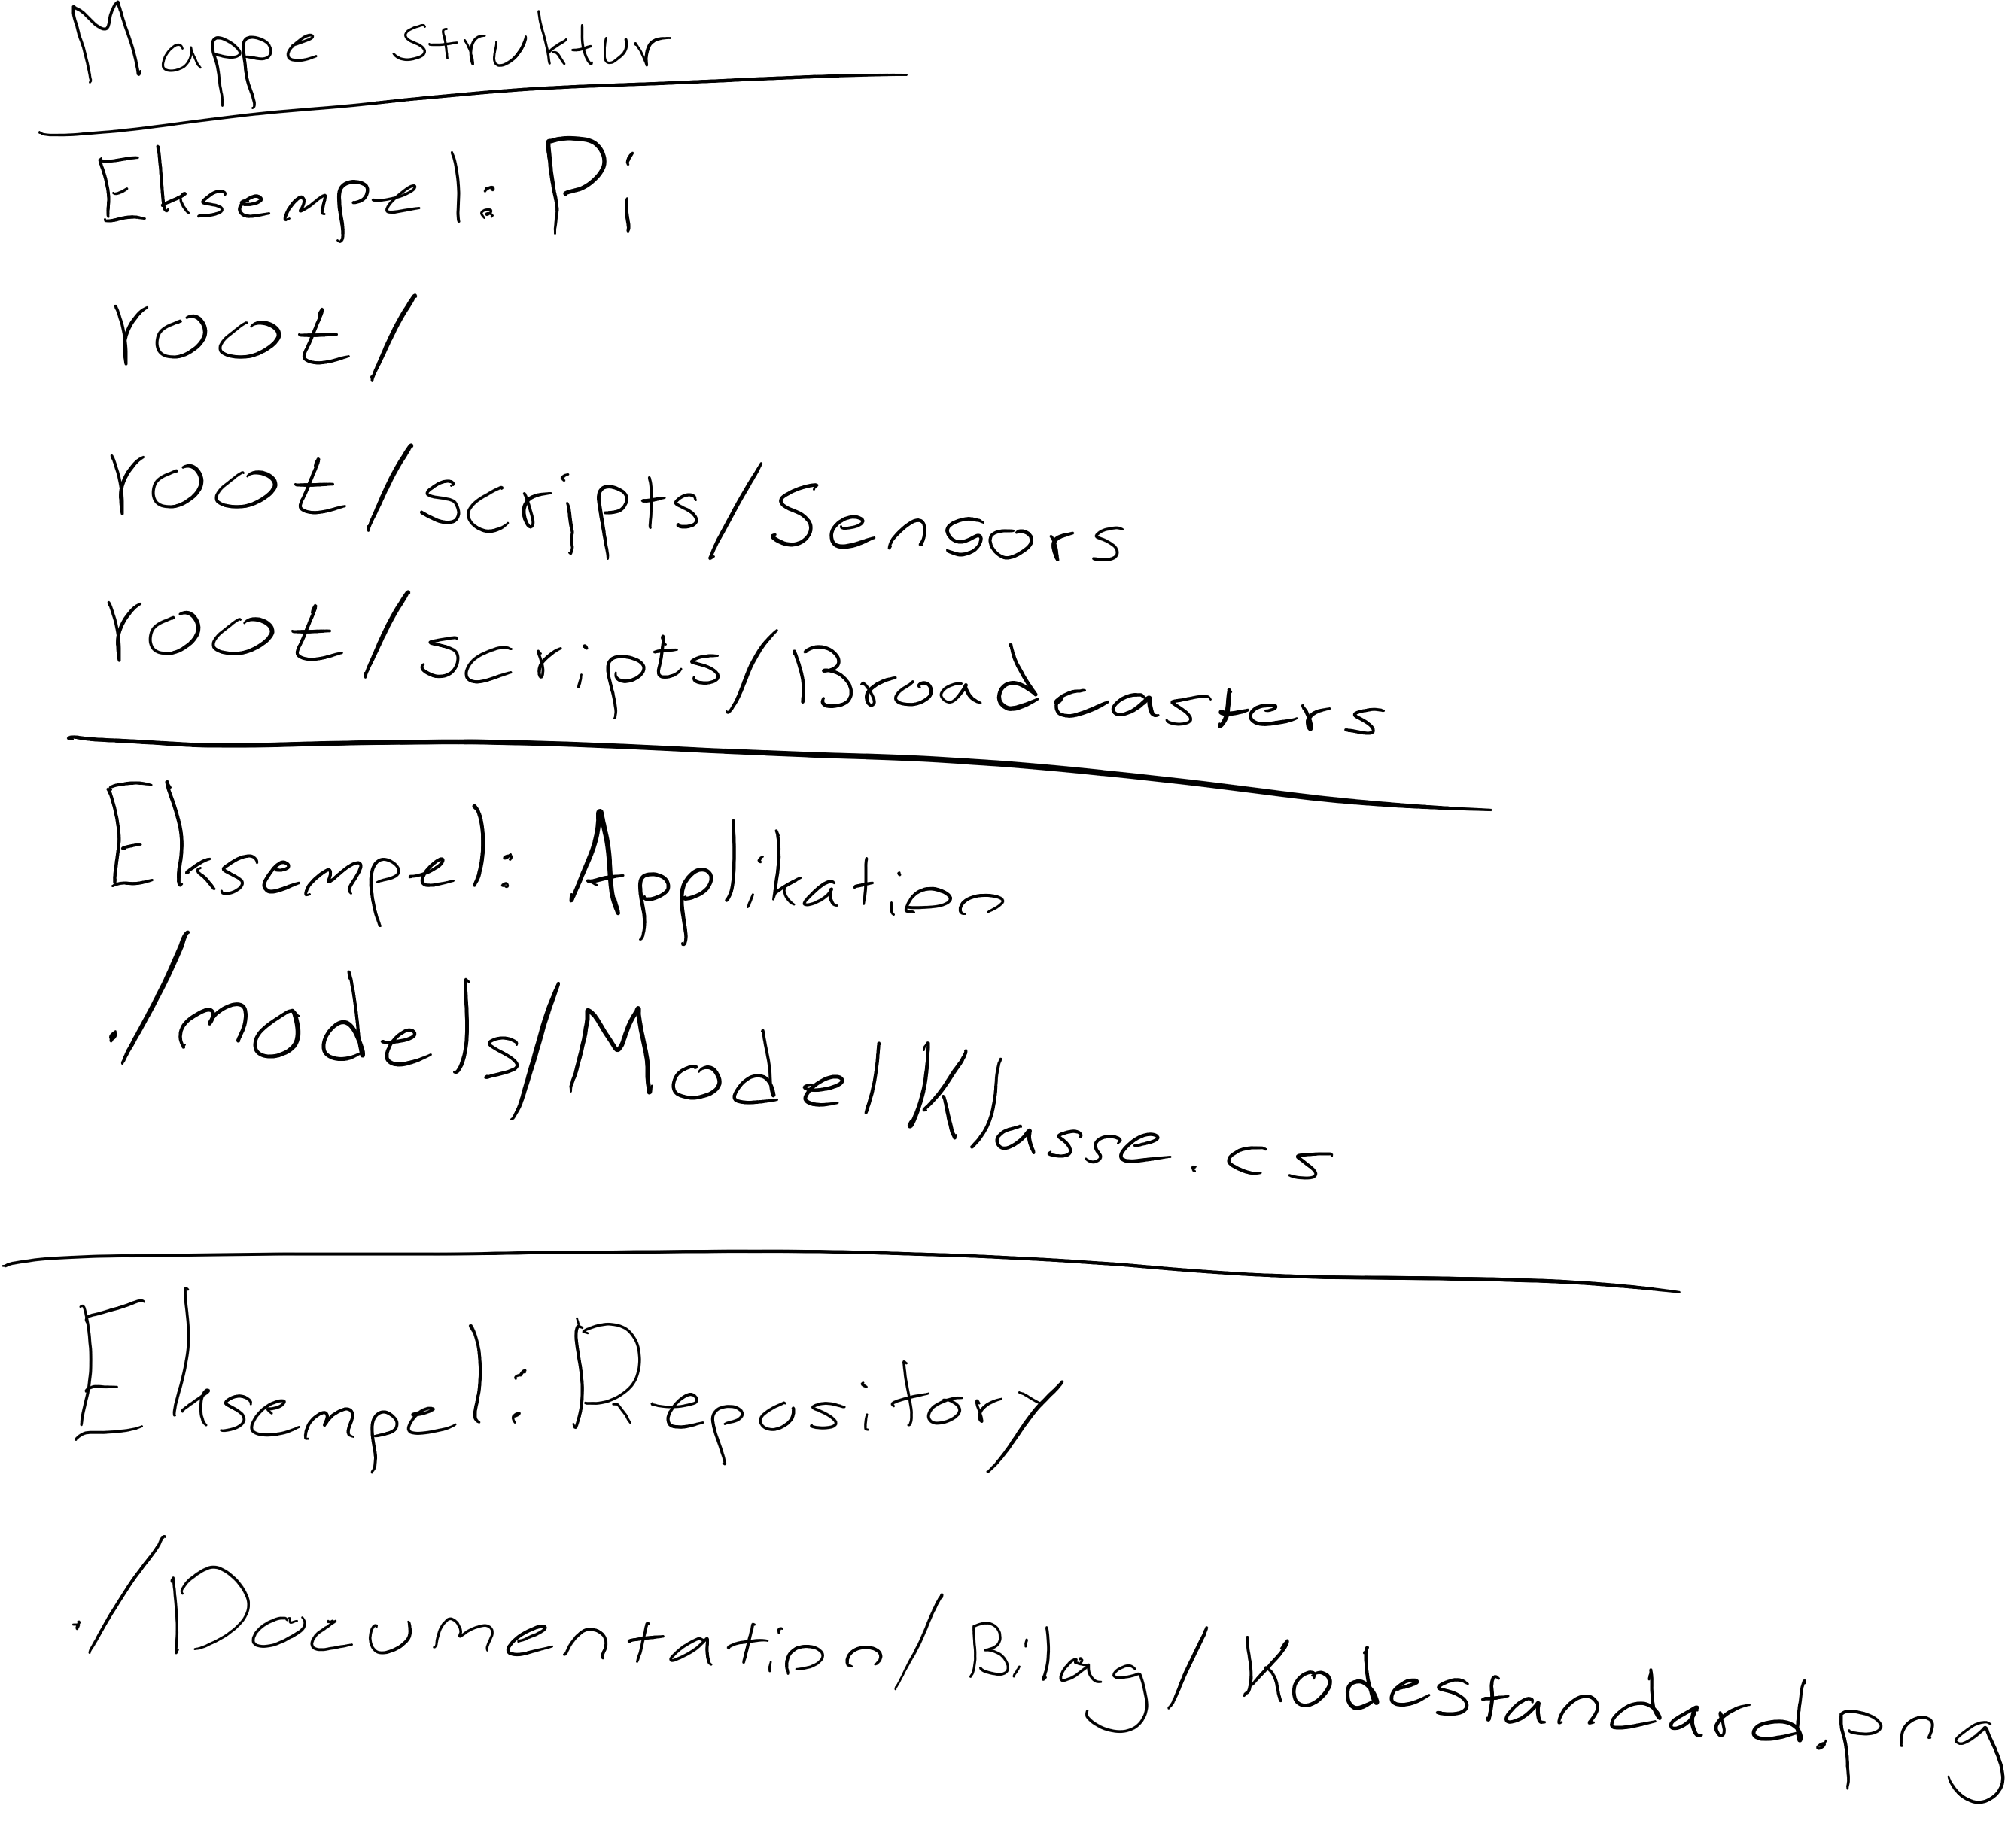 Mappe struktur
Eksempel: Pi
root/
root/scripts/Sensors
root/scripts/Broadcasters
Eksempel: Applikation
./models/ModelKlasse.cs
Eksempel: Repository
./Documentation/Bilag/Kodestandard.png